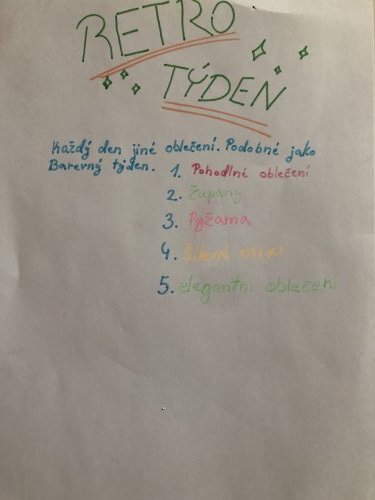 RETRO
TÝDEN
Každý den jiné oblečení. Podobné jako
Barevný týden. 1. Pohodlné oblečení
2. Župany
3. Pyžama
4. Šílené mixi
5. elegantní oblečení